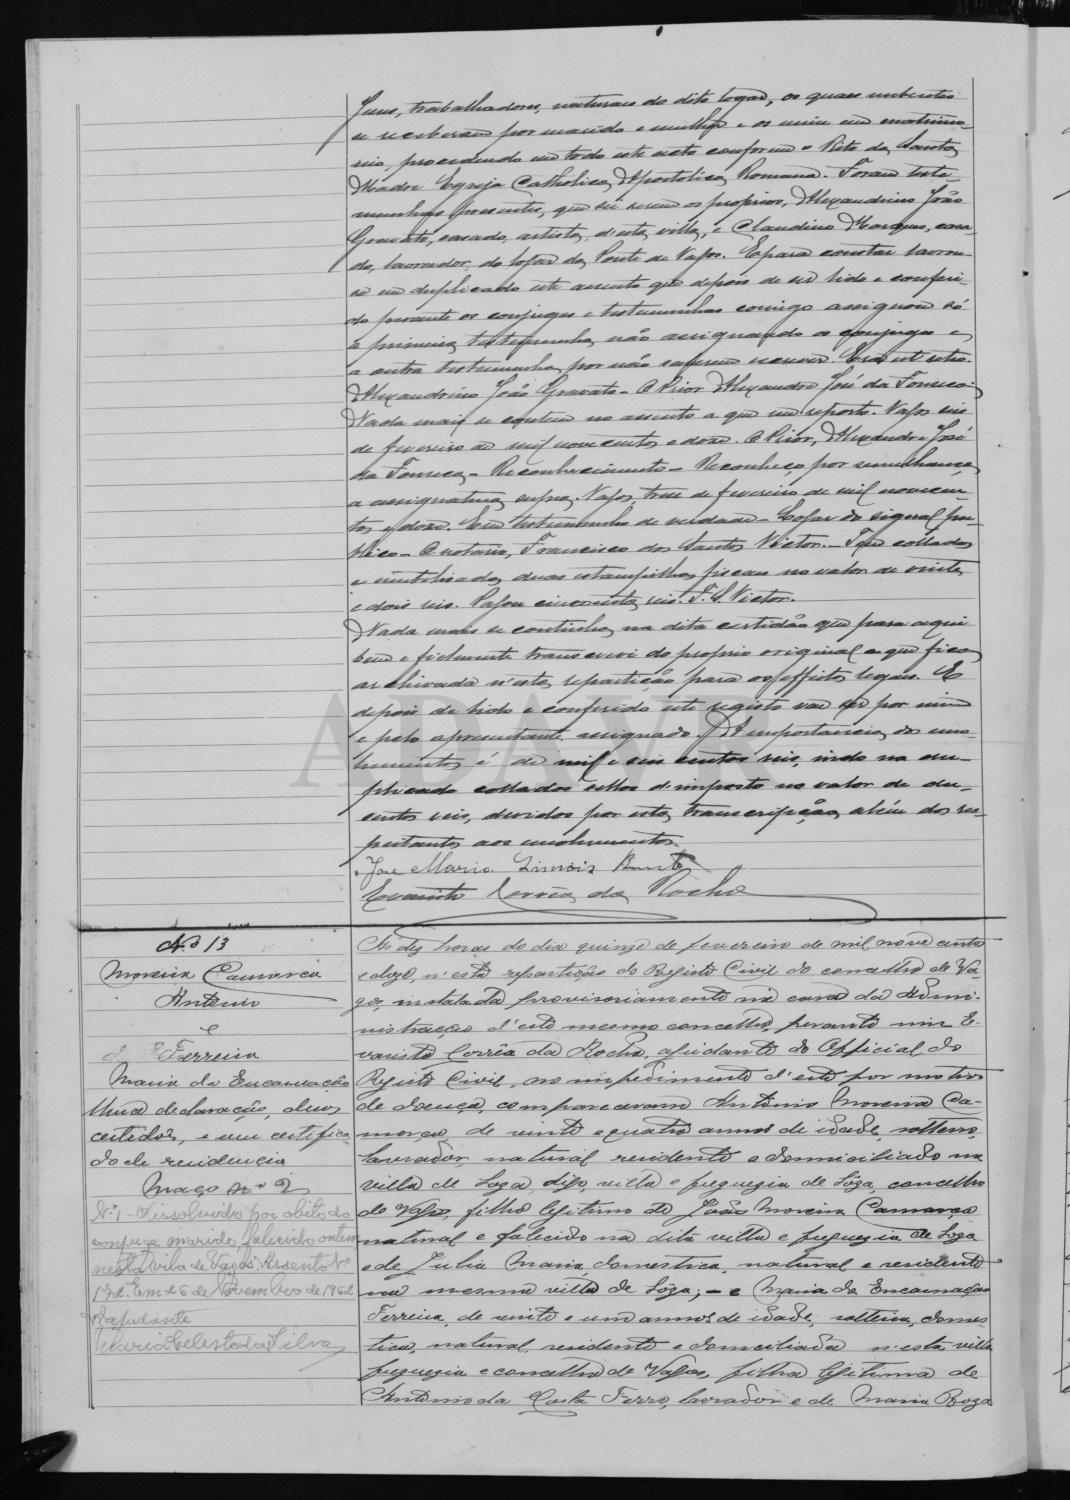 trabalhadores, naturaes do dito logar, os quaes
se receberam por marido e mulher e os uniu em matrimo-
nio, procedendo em todo este acto conforme o Rito da Santa
Madre Egreja Catholica, Apostolica Romana. Foram teste-
munhas presentes, que sei serem os proprios, Alexandrino João
Gravato, casado, artista, d'esta villa, e Claudino Marques, casa-
do, lavrador, do logar da Ponte de Vagos. E para constar lavrou-
se em duplicado este assento que depois de ser lido e conferi-
do perante os conjuges e testemunhas comigo assignou só
a primeira testemunha, não assignando os conjuges e
a outra testemunha por não saberem escrever. Era ut retro.
Alexandrino João Gravato - O Prior Alexandre José da Fonseca.
Nada mais se contem no assento a que me reporto. Vagos, seis
de fevereiro de mil novecentos e doze. O Prior, Alexandre José
da Fonseca - Reconhecimento - Reconheço por semelhança
a assignatura supra. Vagos, treze de fevereiro de mil novecen-
tos e doze. Em testemunho de verdade - Logar do signal pu-
blico - O notario, Francisco dos Santos Victor. - Tem colladas
e inutilisadas duas estampilhas fiscaes no valor de vinte
e dois reis. Pagou cincoenta reis. F. S. Victor.
Nada mais se continha na dita certidão que para aqui
bem e fielmente transcrevi do proprio original a que fica
archivada n'esta repartição para os effeitos legaes. E
depois de lido e conferido este registo vae ser por mim
e pelo apresentante assignado. A importancia dos emo-
lumentos é de mil e seis centos reis, indo no du-
plicado collados sellos d'imposto no valor de du-
sentos reis, devidos por esta transcripção, alem dos res-
peitantes aos emolumentos.
José Maria Simões
Evaristo Corrêa da Rocha
Nº 13
Moreira Camarca
Antonio
e
Ferreira
Maria da Encarnação
Uma declaração, duas
certidões, e um certifica-
do de residencia
Maço nº 2
Nº 1 - Dissolvido por obito do
conjuge marido falecido ontem
nesta vila de Vagos. Assento Nº
Em 26 de Novembro de 1962
O ajudante
Maria Celeste da Silva
Ás dez horas do dia quinze de fevereiro de mil nove centos
e doze, n'esta repartição do Registo Civil do concelho de Va-
gos, instalada provisoriamente na casa da Admi-
nistração d'este mesmo concelho, perante mim E-
varisto Corrêa da Rocha, ajudante do Official do
Registo Civil, no impedimento d'este por motivo
de doença, compareceram Antonio Moreira Ca-
marca, de vinte e quatro annos de idade, solteiro,
lavrador, natural residente e domiciliado na
villa de Soza, digo, villa e freguezia de Sôza concelho
de Vagos, filho legitimo de João Moreira Camarca
natural e falecido na dita villa e freguezia de Soza
e de Julia Maria, domestica, natural e residente
na mesma villa de Sôza; - e Maria da Encarnação
Ferreira, de vinte e um annos de idade, solteira, domes-
tica, natural, residente e domiciliada n'esta villa
freguezia e concelho de Vagos, filha legitima de
Antonio da Costa Ferro, lavrador e de Maria Roza
ADAVR